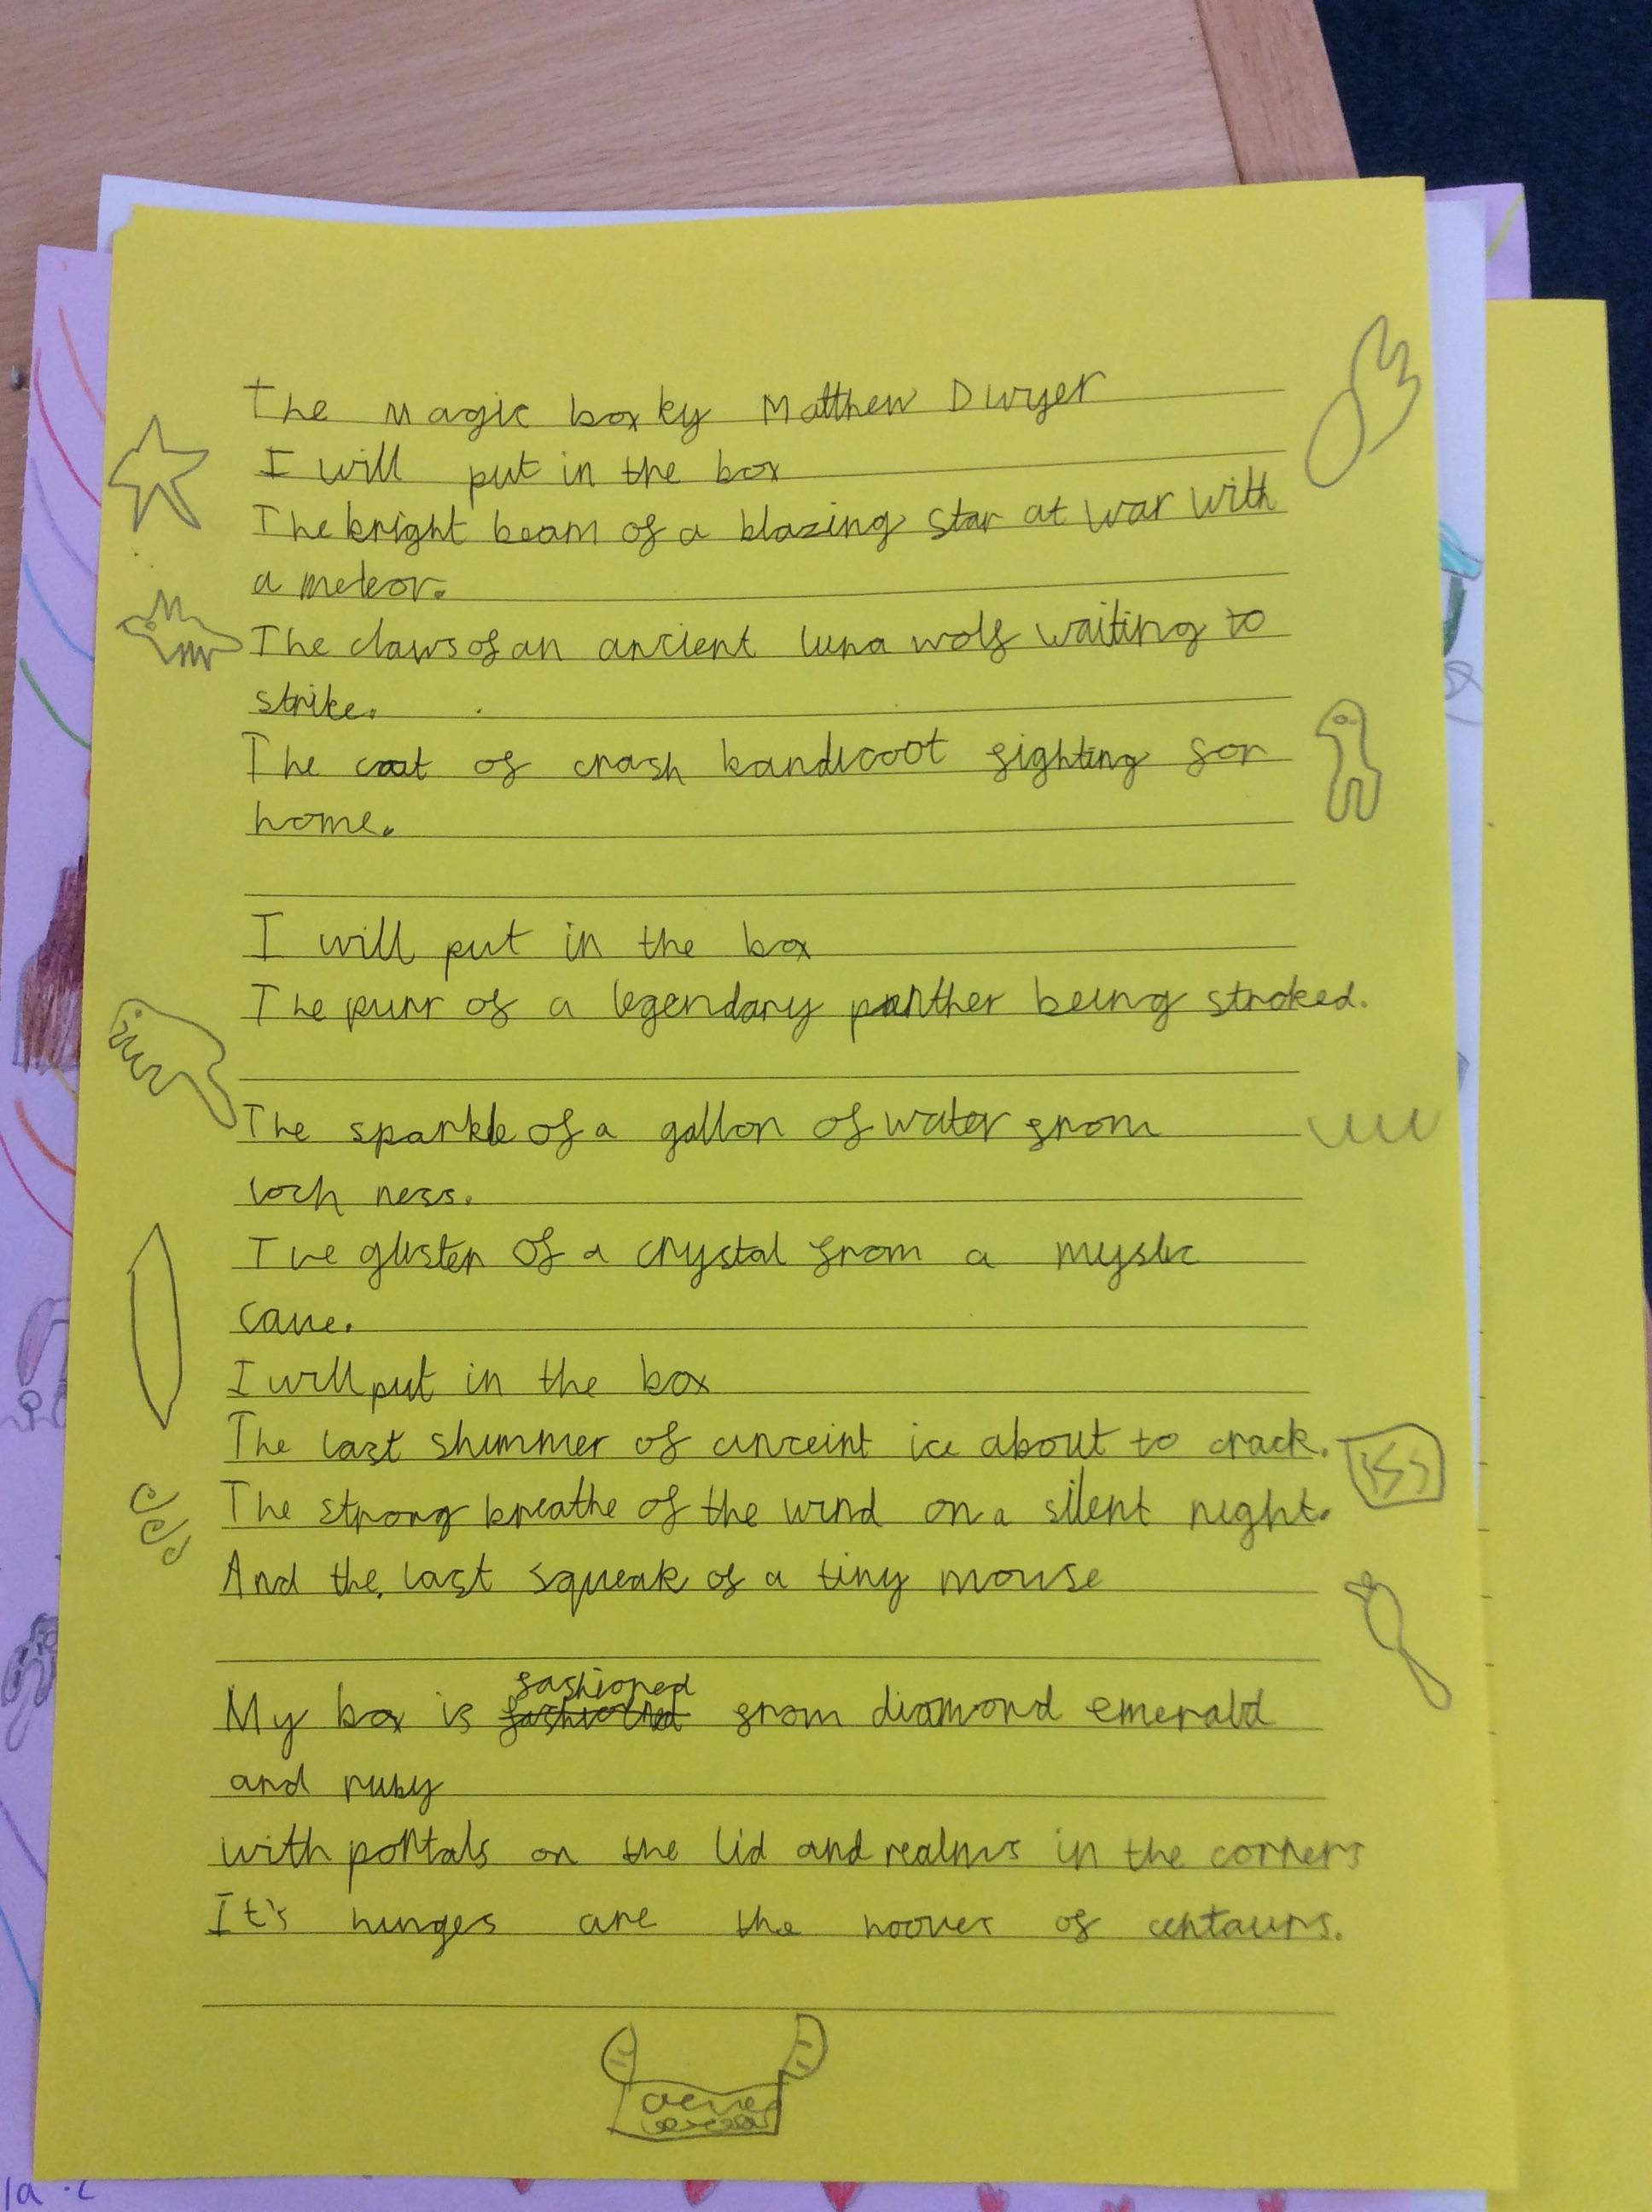 The Magic box by Matthew Dwyer
I will put in the box
The bright beam of a blazing star at war with
a meteor.
The claws of an ancient luna wolf waiting to
strike.
The coat of crash bandicoot fighting for
home.
I will put in the box
The purr of a legendary panther being stroked.
The sparkle of a gallon of water from
loch ness.
The glisten of a crystal from a mystic
cave.
I will put in the box
The last shimmer of anceint ice about to crack.
The strong breathe of the wind on a silent night.
And the last squeak of a tiny mouse
fashioned
My box is from diamond emerald
and ruby
with portals on the lid and realms in the corners
It's hinges are the hooves of centaurs.